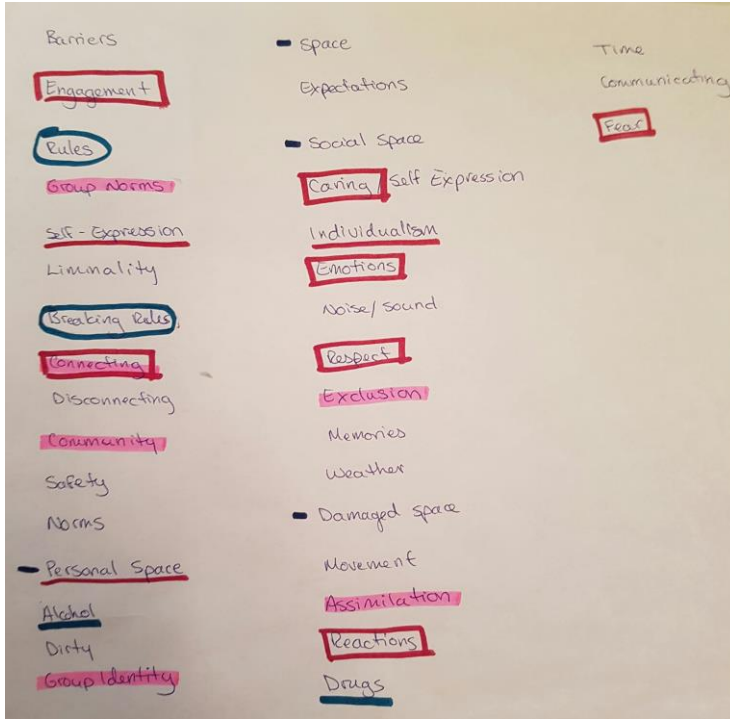 Barriers
Engagement
Rules
Group Norms
Self-Expression
Liminality
Breaking Rules
Connecting
Disconnecting
Community
Safety
Norms
Personal Space
Alcohol
Dirty
Group Identity
Space
Expectations
Social Space
Caring / Self Expression
Individualism
Emotions
Noise/Sound
Respect
Exclusion
Memories
Weather
Damaged Space
Movement
Assimilation
Reactions
Drugs
Time
Communicating
Fear